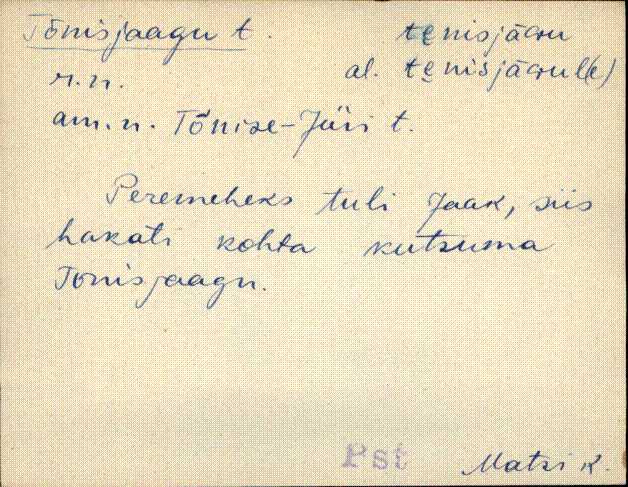 Tõnisjaagu t. tẹnisjäɢu
r.n. al. tẹnisjäɢul(e)
am.n. Tõnise-Jüri t.
Peremeheks tuli Jaak, siis
hakati kohta kutsuma
Tõnisjaagu.
Pst Matsi k.